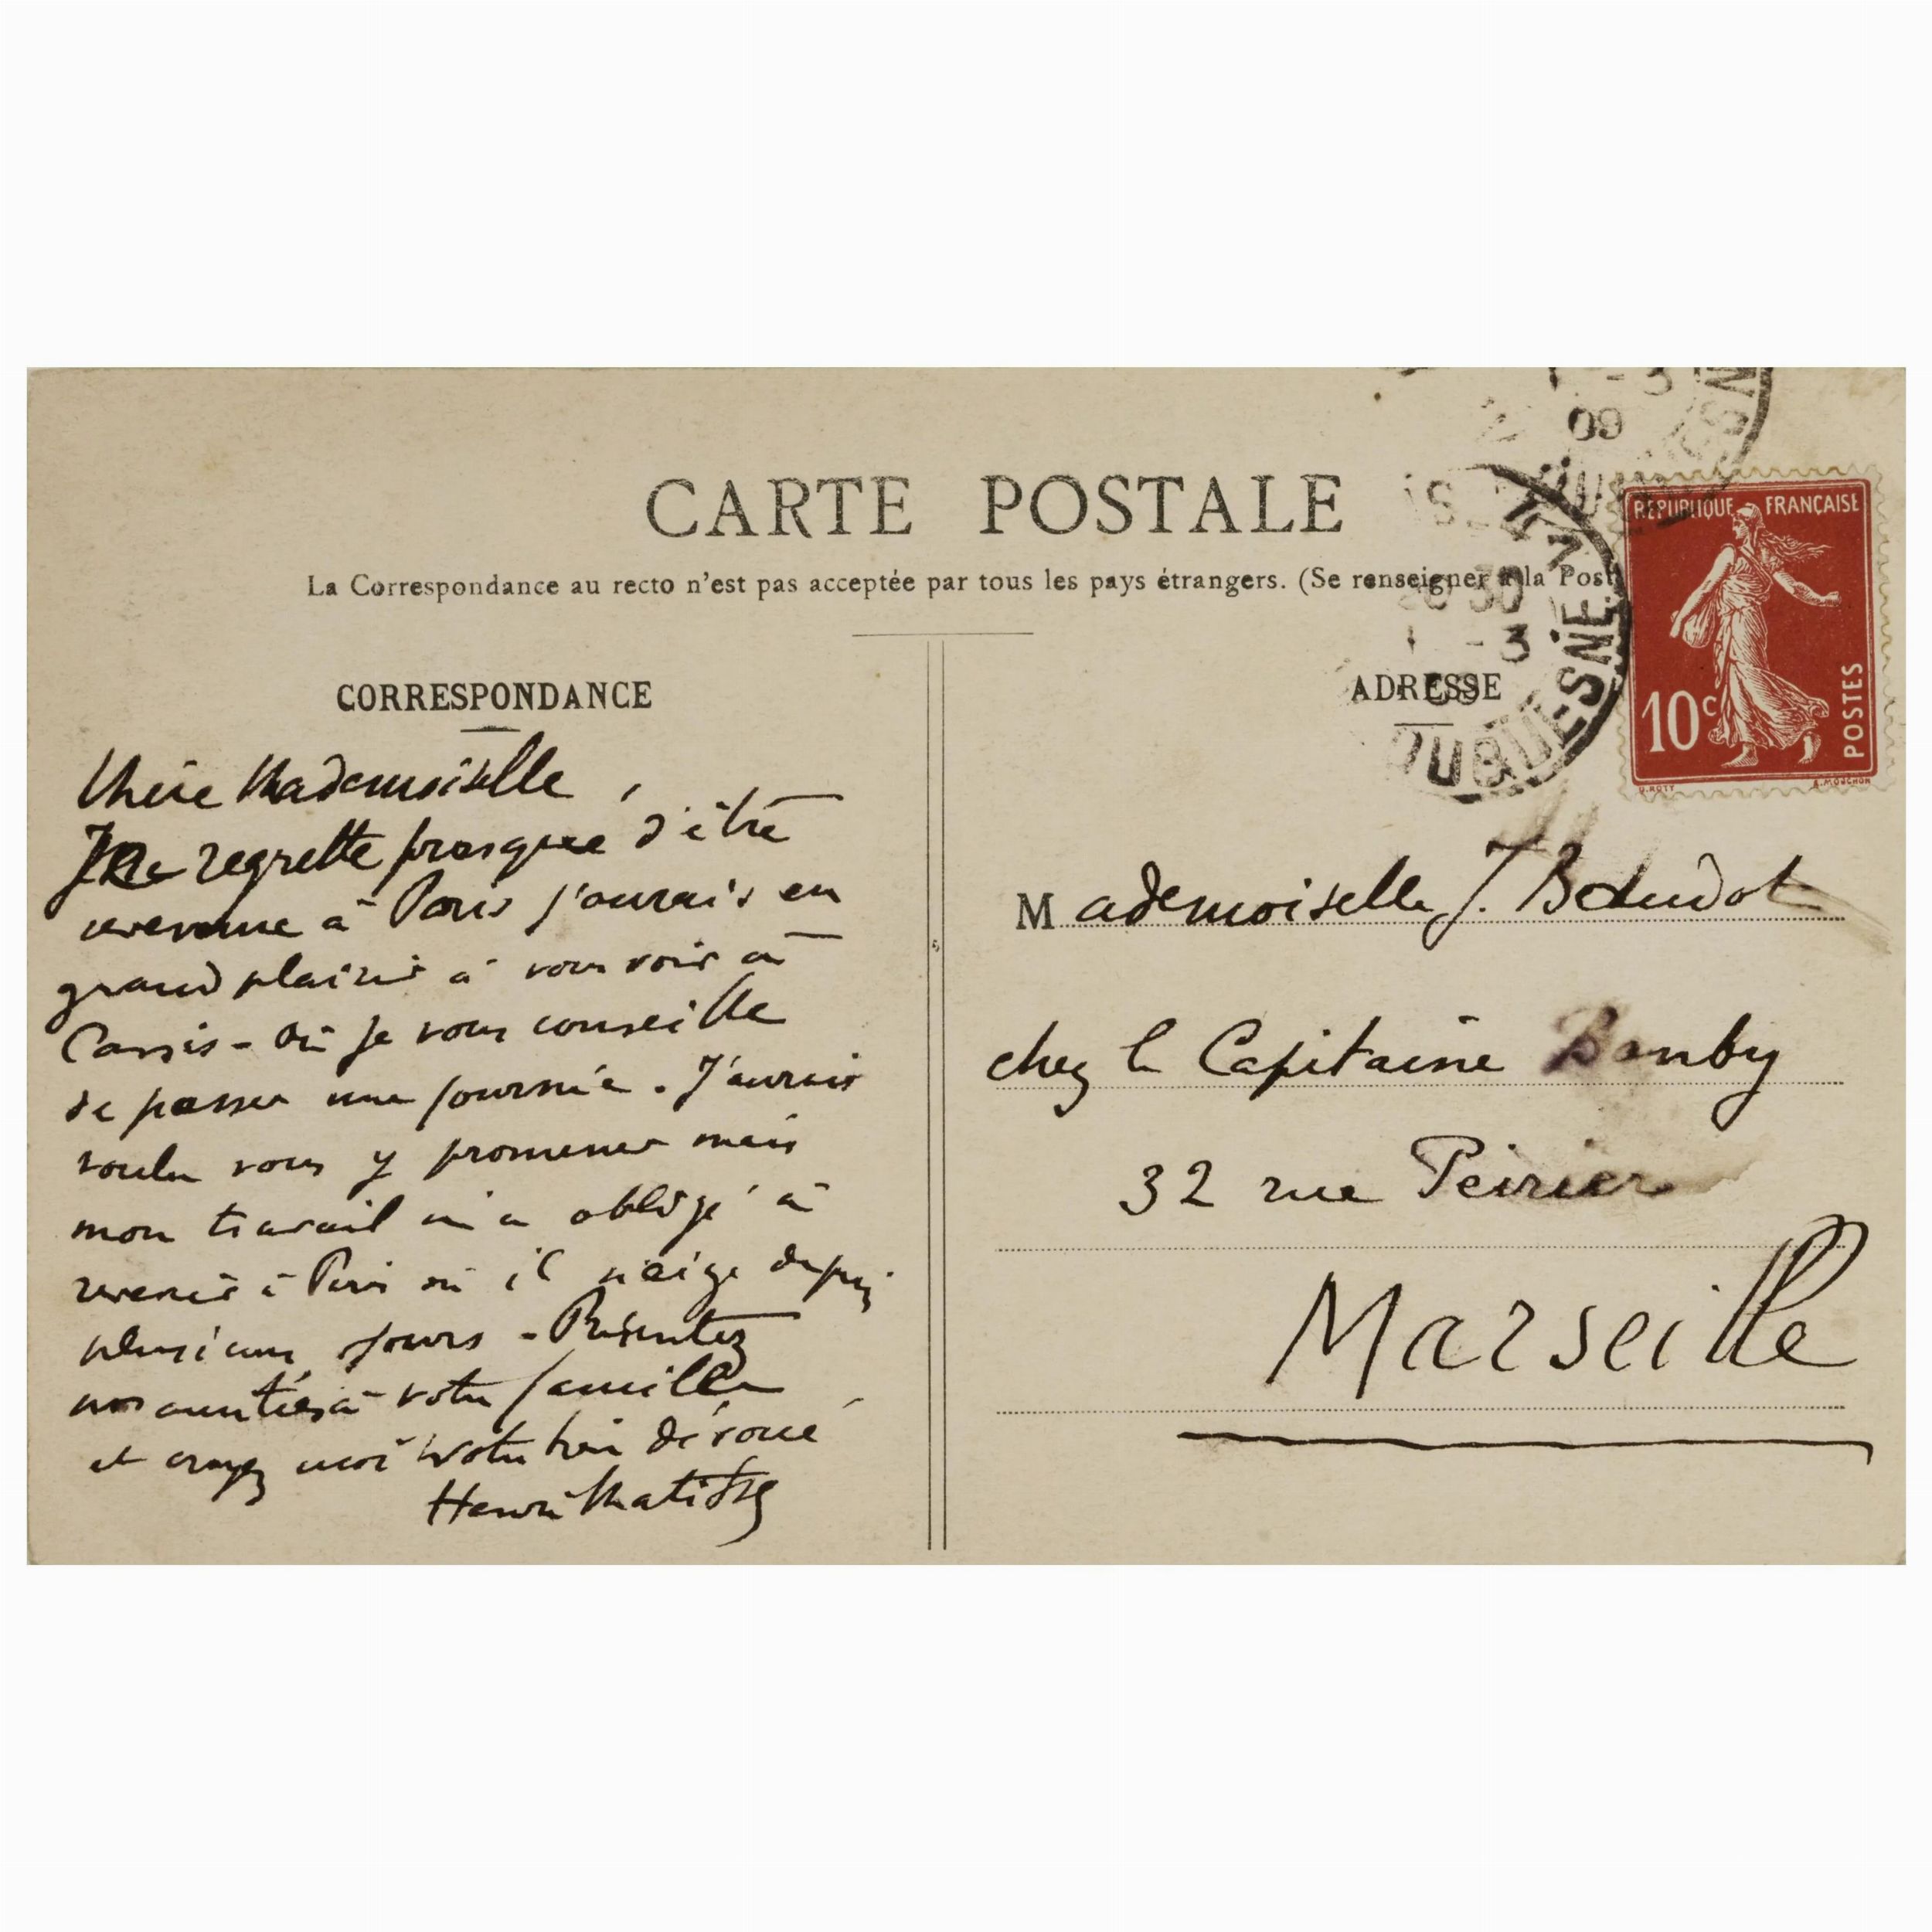 CARTE POSTALE
La Correspondance au recto n'est pas acceptée par tous les pays étrangers. (Se renseigner à la Post
CORRESPONDANCE
Chère Mademoiselle,
Je regrette presque d'être
revenue à Paris j'aurais eu
grand plaisir à vous voir à
Cassis - où je vous conseille
de passer une journée. J'aurais
voulu vous y promener mais
mon travail m'a obligé à
revenir à Paris où il neige depuis
plusieurs jours - Présentez
nos amitiés à votre famille
et croyez moi votre bien dévoué
Henri Matisse
09
30
1 -3
09
DUQUESNE
REPUBLIQUE FRANÇAISE
10c
POSTES
O. ROTY
A. MOUCHON
ADRESSE
Mademoiselle J.
chez le Capitaine
32 rue Peirier
Marseille